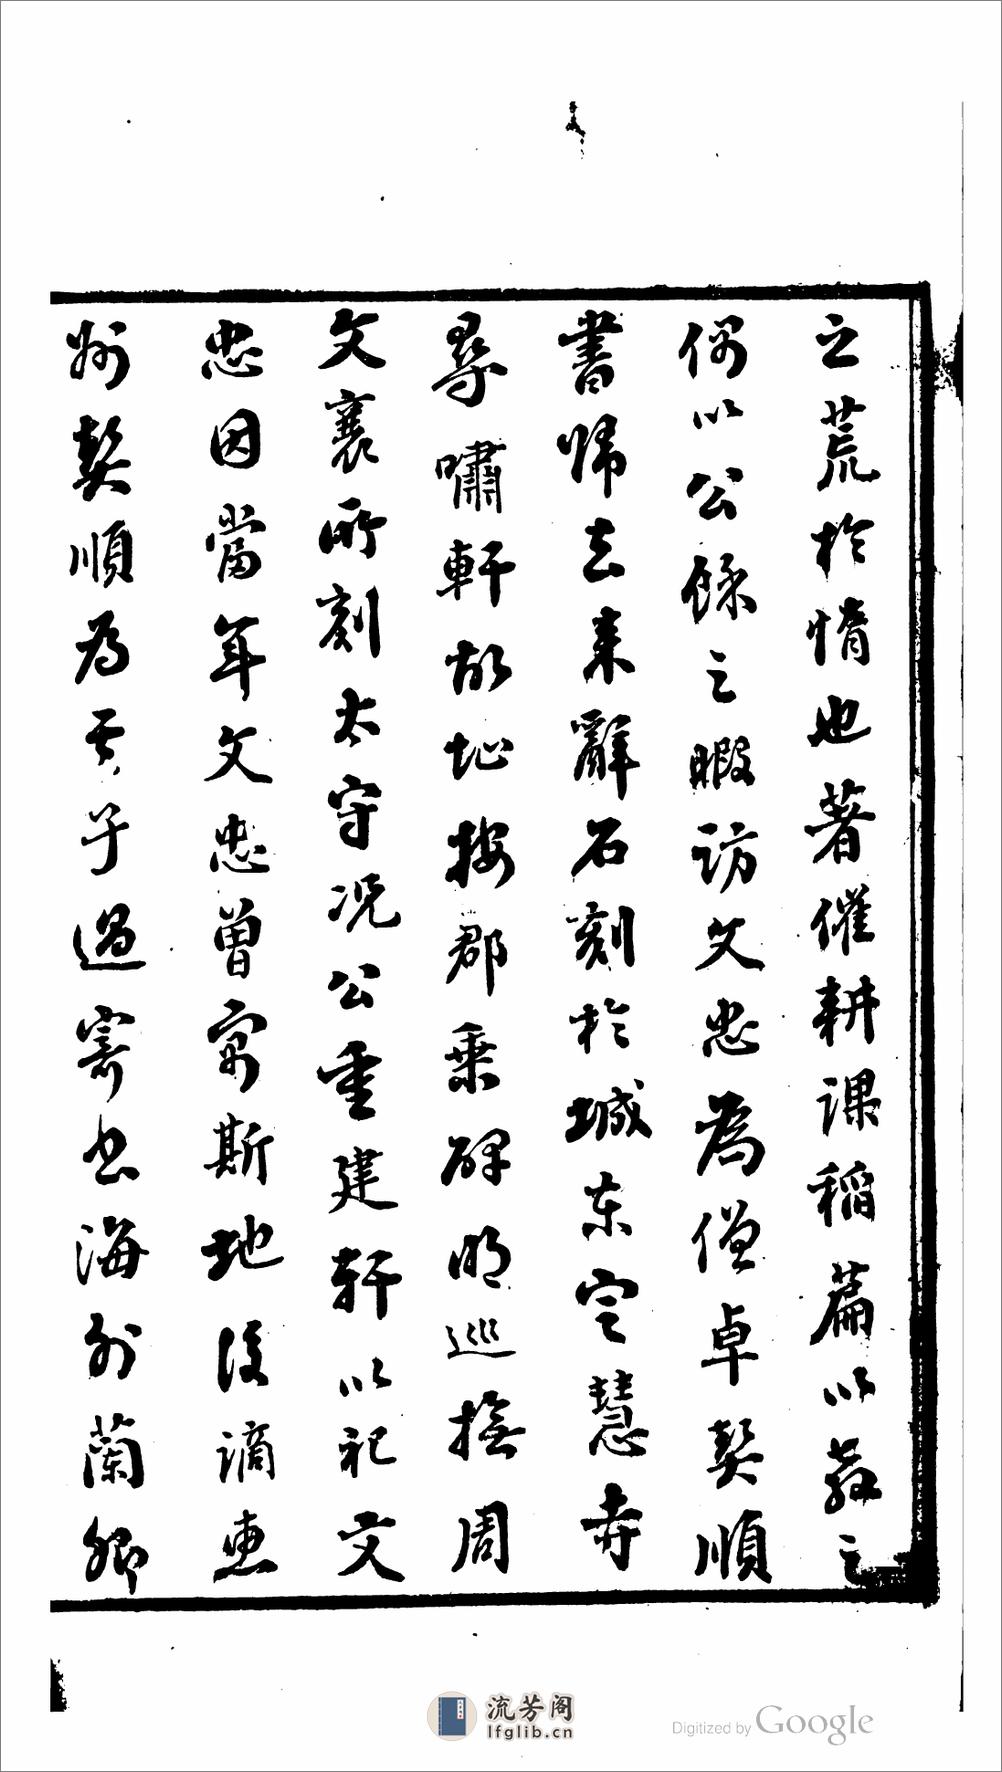 之荒於惰也著催耕課稻篇以教之
偶以公餘之暇訪文忠為僧卓契順
書歸去來辭石刻於城東定慧寺
尋嘯軒故址按郡乘碑明巡撫周
文襄所刻太守况公重建軒以祀文
忠因當年文忠曾寓斯地後謫惠
州契順為其子過寄書海外蘭卿
流芳阁
lfglib.cn
Digitized by Google